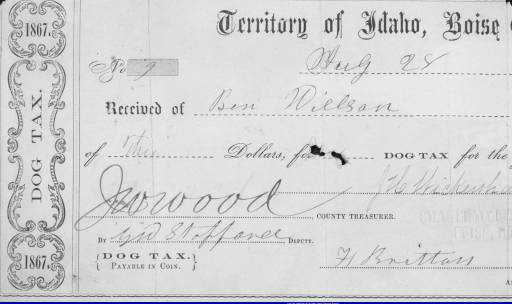 1867.
DOG TAX.
1867.
Territory of Idaho, Boise
No 9 Aug 28
Received of Ben Willson
of Dollars, for DOG TAX for the
COUNTY TREASURER.
BY DEPUTY.
{DOG TAX.
PAYABLE IN COIN.} H Britton